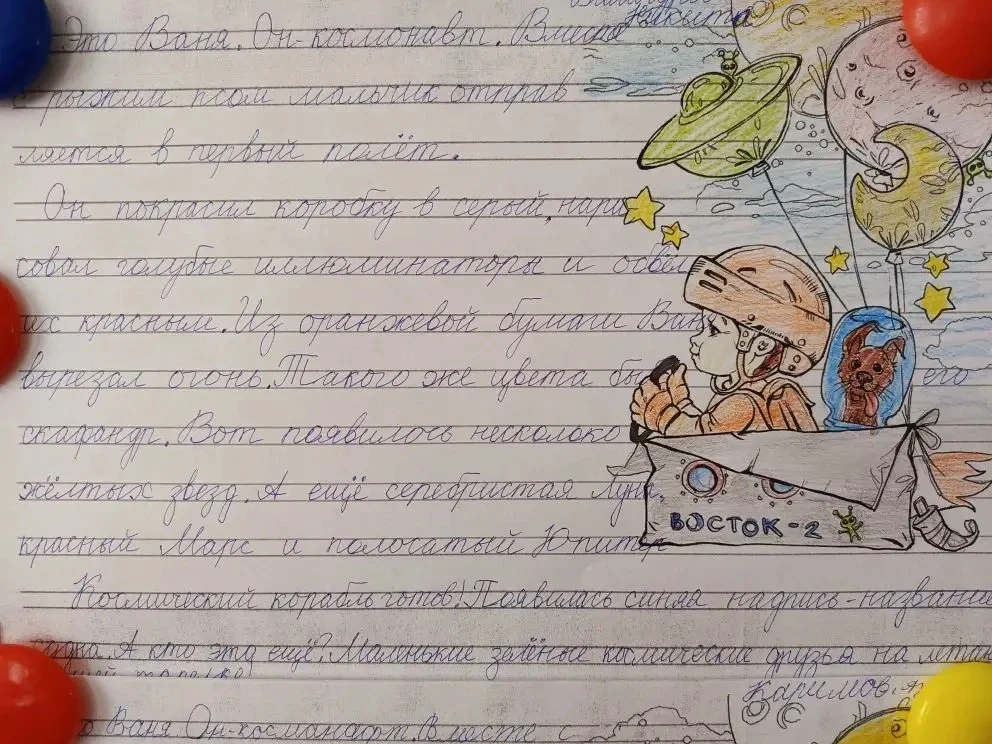 Никита
Это Ваня. Он-космонавт. Вместе
с рыжим псом мальчик отправ
ляется в первый полёт.
Он покрасил коробку в серый, нари
совал голубые иллюминаторы и обвёл
их красным. Из оранжевой бумаги Ван
вырезал огонь. Такого же цвета бы его
скафандр. Вот появилось несколоко
жёлтых звезд. А ещё серебристая Луна,
красный Марс и полосатый Юпитер
ВОСТОК-2
Космический корабль готов! Появилась синяя надпись-названи
судна. А кто это ещё? Маленькие зелёные космические друзья на летаю
щей тарелке!
Каримов
Ваня Он-косманафт. Вместе с